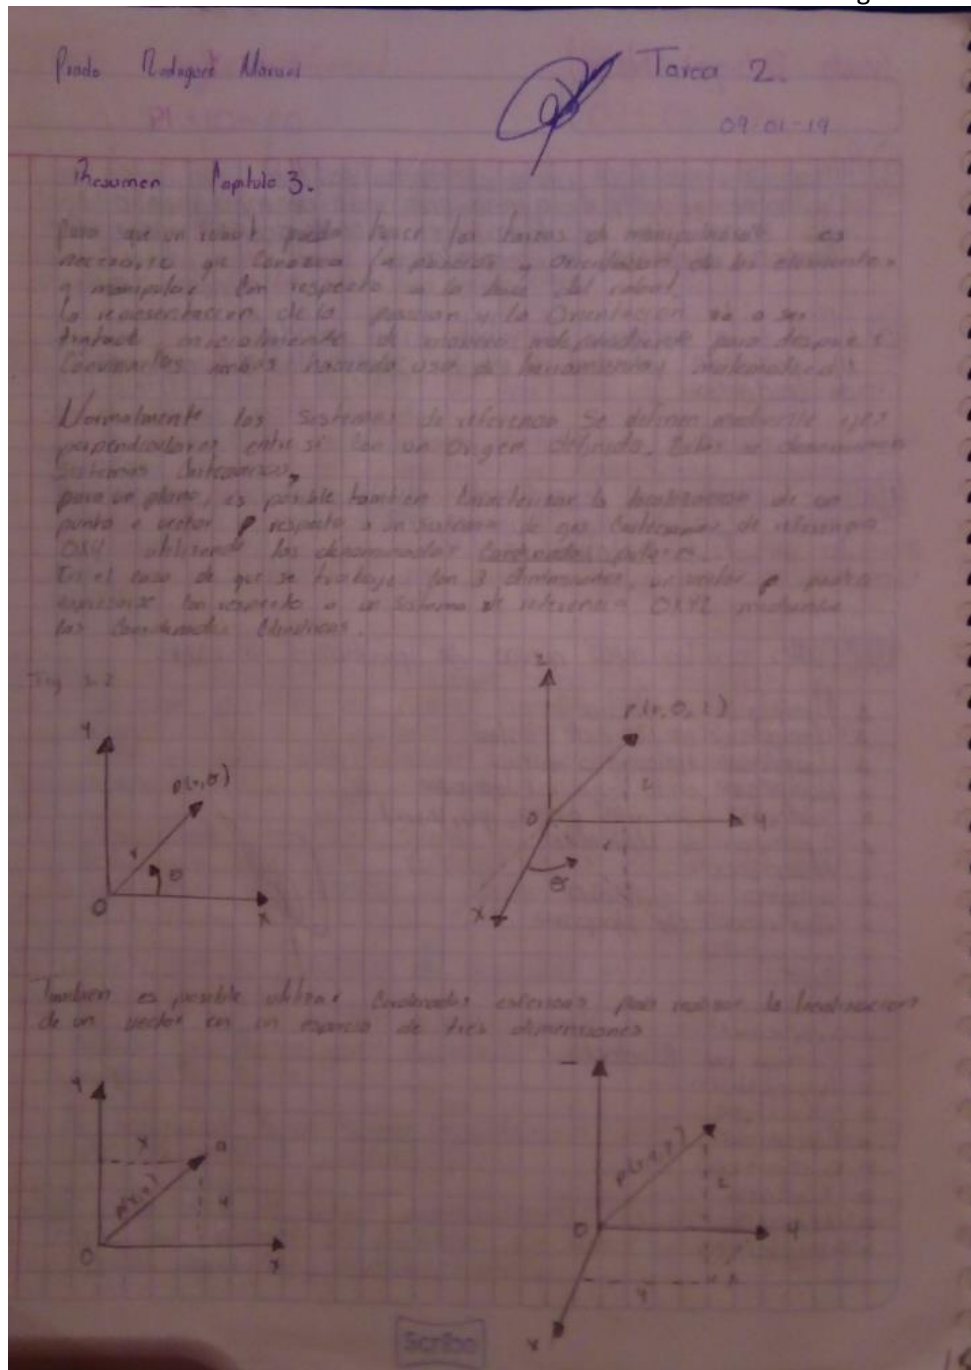 Prado Rodriguez Manuel
Tarea 2.
09-01-19
Resumen Capitulo 3.
Para que un robot pueda hacer las tareas de manipulacion es
necesario que conozca la posicion y Orientacion, de los elementos
a manipular Con respecto a la base del robot.
la representacion de la posicion y la Orientacion va a ser
inicialmente de manera independiente para despues
ambas haciendo uso de herramientas matematicas
Normalmente los Sistemas de referencia Se definen mediante ejes
perpendiculares entre si Con un Origen definido. Estos se denominan
Sistemas Cartesianos,
para un plano, es posible tambien Caracterizar la localizacion de un
punto o vector p respecto a un Sistema de ejes Cartesianos de referencia
OXY utilizando las denominadas Cordenadas polares.
En el caso de que se trabaje Con 3 dimensiones, un vector p podra
expresarse Con respecto a un Sistema de referencia OXYZ mediante
las Coordenadas Cilindricas.
Fig 3.2
z
y
p(r,θ)
r
θ
O
x
z
O
y
r
θ
x
Tambien es posible utilizar Cordenadas esfericas para realizar la localizacion
de un vector en un espacio de tres dimensiones
y
x
a
p(x,y)
y
O
x
p(x,y,z)
z
O
y
y
x
Scribe